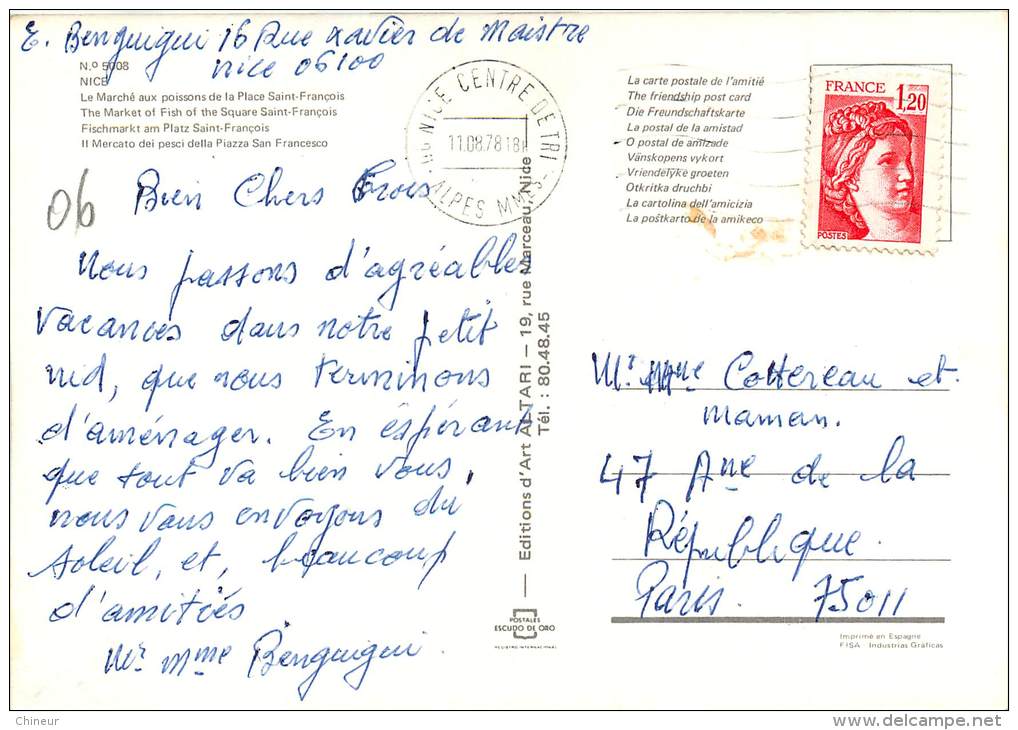 E. Benguigui 16 Rue Xavier de Maistre
Nice 06100
N.º 5008
NICE
Le Marché aux poissons de la Place Saint-François
The Market of Fish of the Square Saint-François
Fischmarkt am Platz Saint-François
Il Mercato dei pesci della Piazza San Francesco
06
Bien Chers Trois
Nous passons d'agréables
vacances dans notre petit
nid, que nous terminons
d'aménager. En éspérant
que tout va bien vous,
nous vous envoyons du
soleil, et, beaucoup
d'amitiés
Mr Mme Benguigui.
06 NICE CENTRE DE TRI
11.08.78 18H
ALPES MMES
Editions d'Art ALTARI — 19, rue Marceau, Nice
Tél. : 80.48.45
POSTALES
ESCUDO DE ORO
REGISTRO INTERNACIONAL
La carte postale de l'amitié
The friendship post card
Die Freundschaftskarte
La postal de la amistad
O postal de amizade
Vänskopens vykort
Vriendelÿke groeten
Otkritka druchbi
La cartolina dell'amicizia
La poŝtkarto de la amikeco
FRANCE
1,20
POSTES
Mr. Mme Cottereau et
maman.
47 Ane de la
République.
Paris. 75011
Imprimé en Espagne
FISA - Industrias Gráficas
Chineur
www.delcampe.net